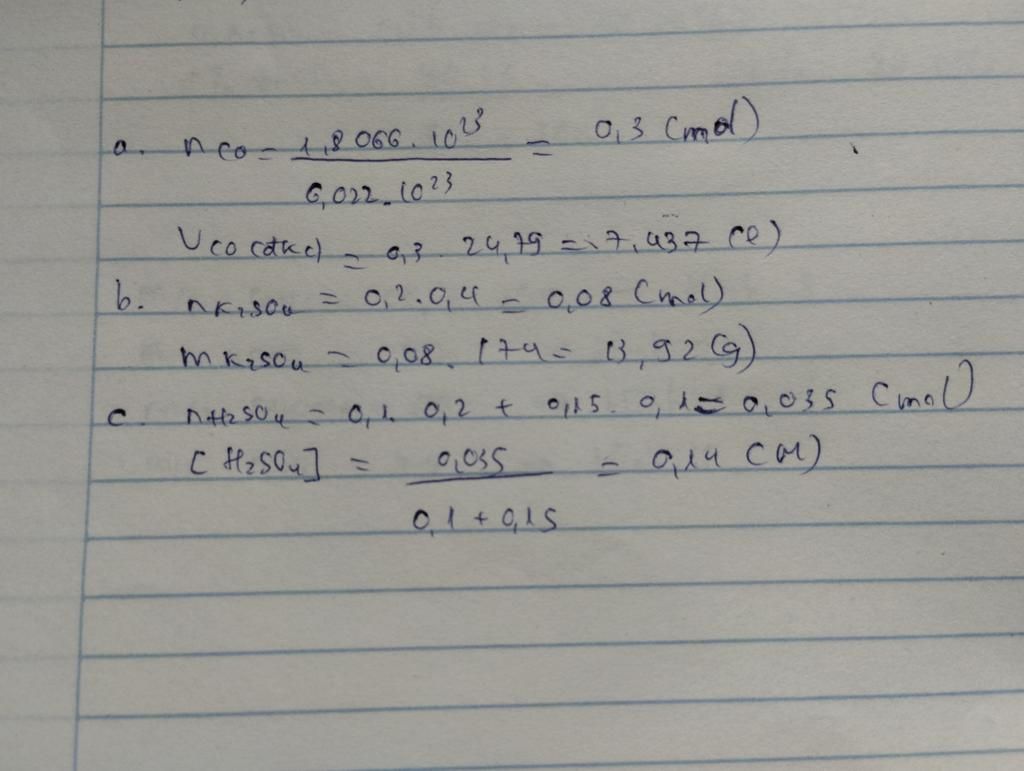 a. nCO = 1,8066.10²³ / 6,022.10²³ = 0,3 (mol)
VCO (đkc) = 0,3. 24,79 = 7,437 (l)
b. nK₂SO₄ = 0,2.0,4 = 0,08 (mol)
mK₂SO₄ = 0,08. 174 = 13,92 (g)
c. nH₂SO₄ = 0,1. 0,2 + 0,15. 0,1 = 0,035 (mol)
[H₂SO₄] = 0,035 / 0,1 + 0,15 = 0,14 (M)